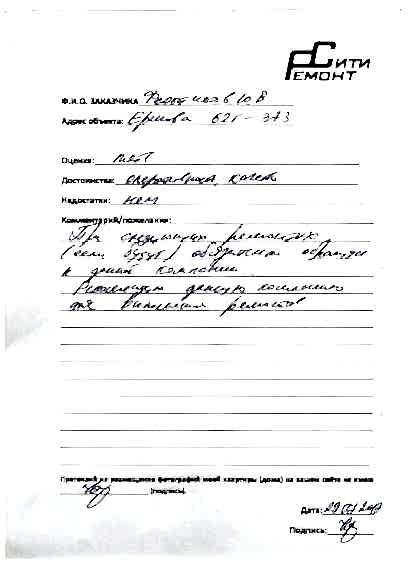 СИТИ
РЕМОНТ
Ф.И.О. ЗАКАЗЧИКА
Адрес объекта: 62г - 373
Оценка:
Достоинства: оперативность,
Недостатки: нет
Комментарий/пожелания:
При следующих ремонтах
(если будут) обязательно
к данной компании
Рекомендую данную компанию
для выполнения ремонтов
Претензий на размещение фотографий моей квартиры (дома) на вашем сайте не имею
(подпись).
Дата:
Подпись: